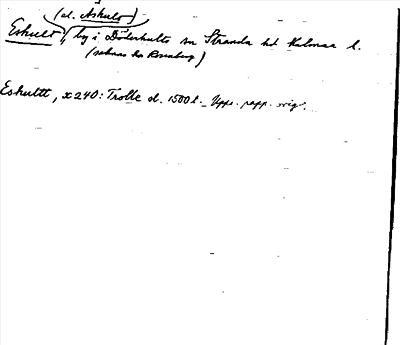 (el. Åskult)
Eskult, by i Döderhults sn Stranda hd Kalmar l.
(saknas hos Rosenberg)
Eskultt, x240: Trolle d. 1500t. Upps. papp. orig.